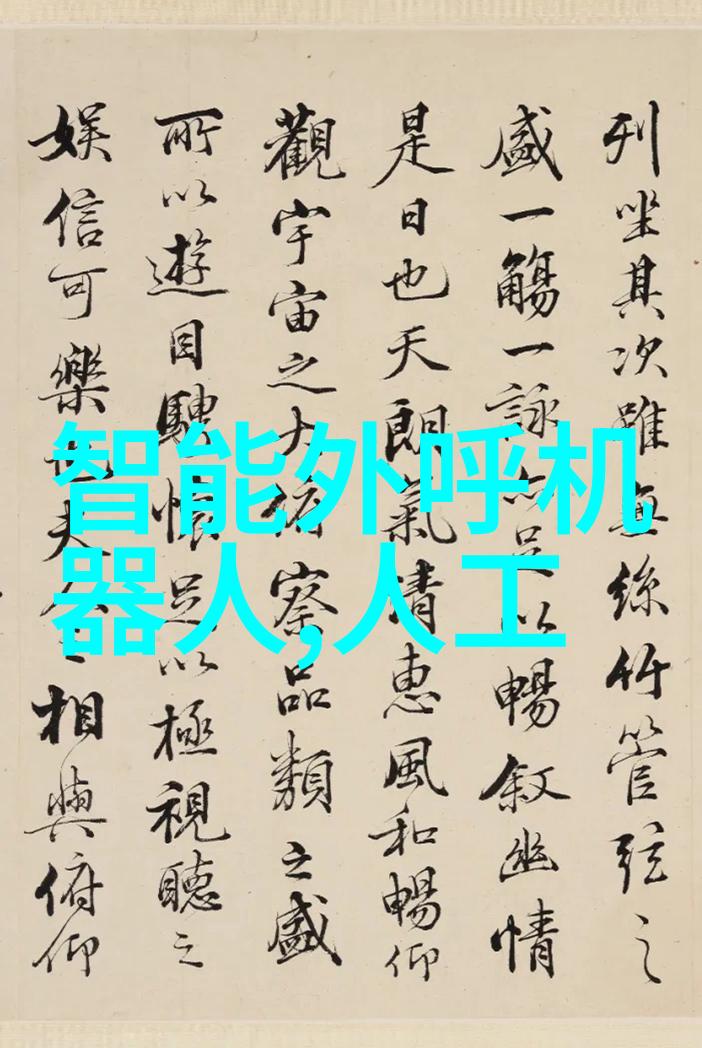 列坐其次雖無絲竹管弦之
盛一觴一詠亦足以暢敘幽情
是日也天朗氣清惠風和暢仰
觀宇宙之大俯察品類之盛
所以遊目騁懷足以極視聽之
娛信可樂也夫人之相與俯仰
智能外呼机
器人,人工